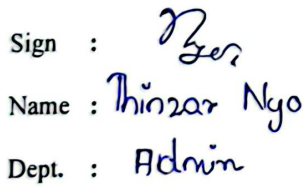 Sign :
Name : Thinzar Nyo
Dept. : Admin